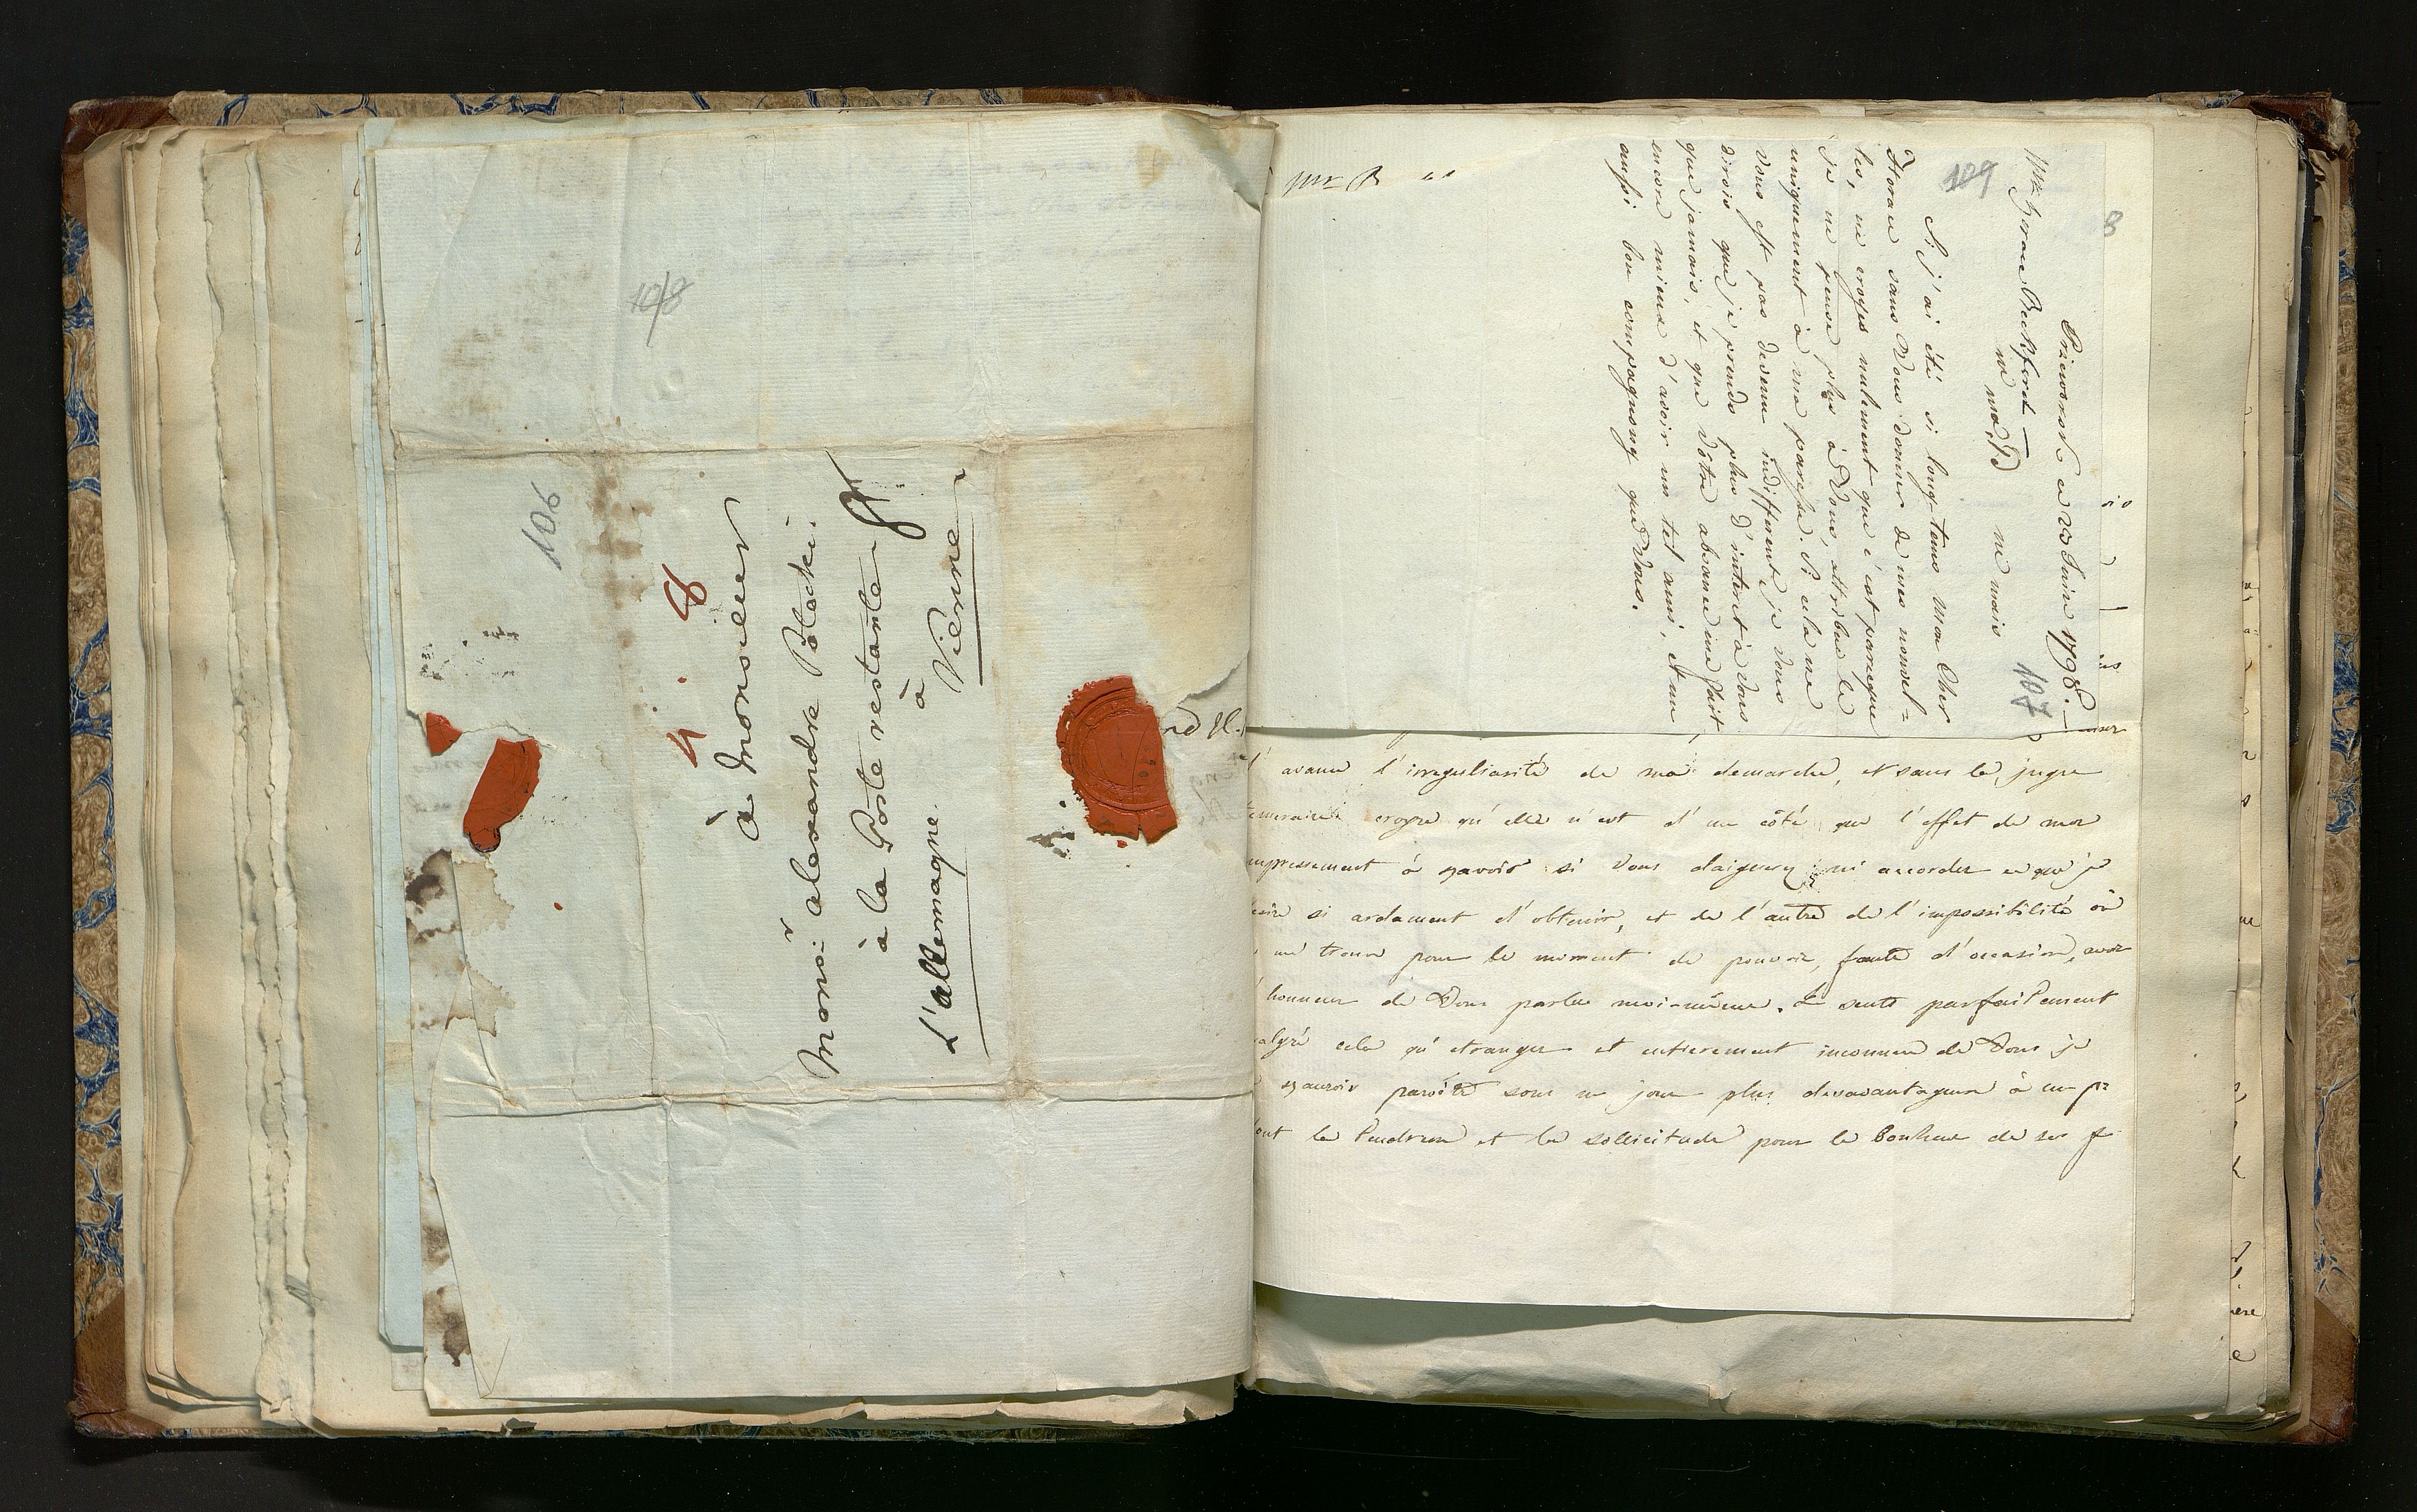 108
106
4. 8
à Monsieur
Monsr: alexandre Potocki.
à la Poste restante
à
Viénne
L'allemagne.
nd
Mr B
8
Prieworsk ce 23 Juin 1798.
Mr Horace Beckford
ni mais
107
109
Si j'ai été si long-tems mon Cher
Horace sans Vous donner de mes nouvel=
les, ne croyés nulement que c'est parceque
je ne pense plus à Vous, attribué le
uniquement à ma paresse. Si cela ne
Vous est pas devenu indifferent je Vous
dirois que je prends plus d'interet à Vous
que jamais, et que Vôtre absence me fait
encore mieux d'avoir un tel ami, et un
aussi bon compagnong que Vous.
avance l'irreguliarité de ma demarche, et sans la juger
temeraire croyre qu'elle n'est d'un côté que l'effet de mon
empressement à savoir si Vous daignerez m'accorder ce que je
desire si ardament d'obtenir, et de l'autre de l'impossibilité où
me trouve pour le moment de pouvoir, faute d'occasion, avoir
l'honneur de Vous parler moi-même. Je sents parfaitement
malgré cela qu'etranger et entierement inconnu de Vous je
saurois paroitre sous un jour plus desavantageux à un pe
dont la tendresse et la sollicitude pour le bonheur de ses f